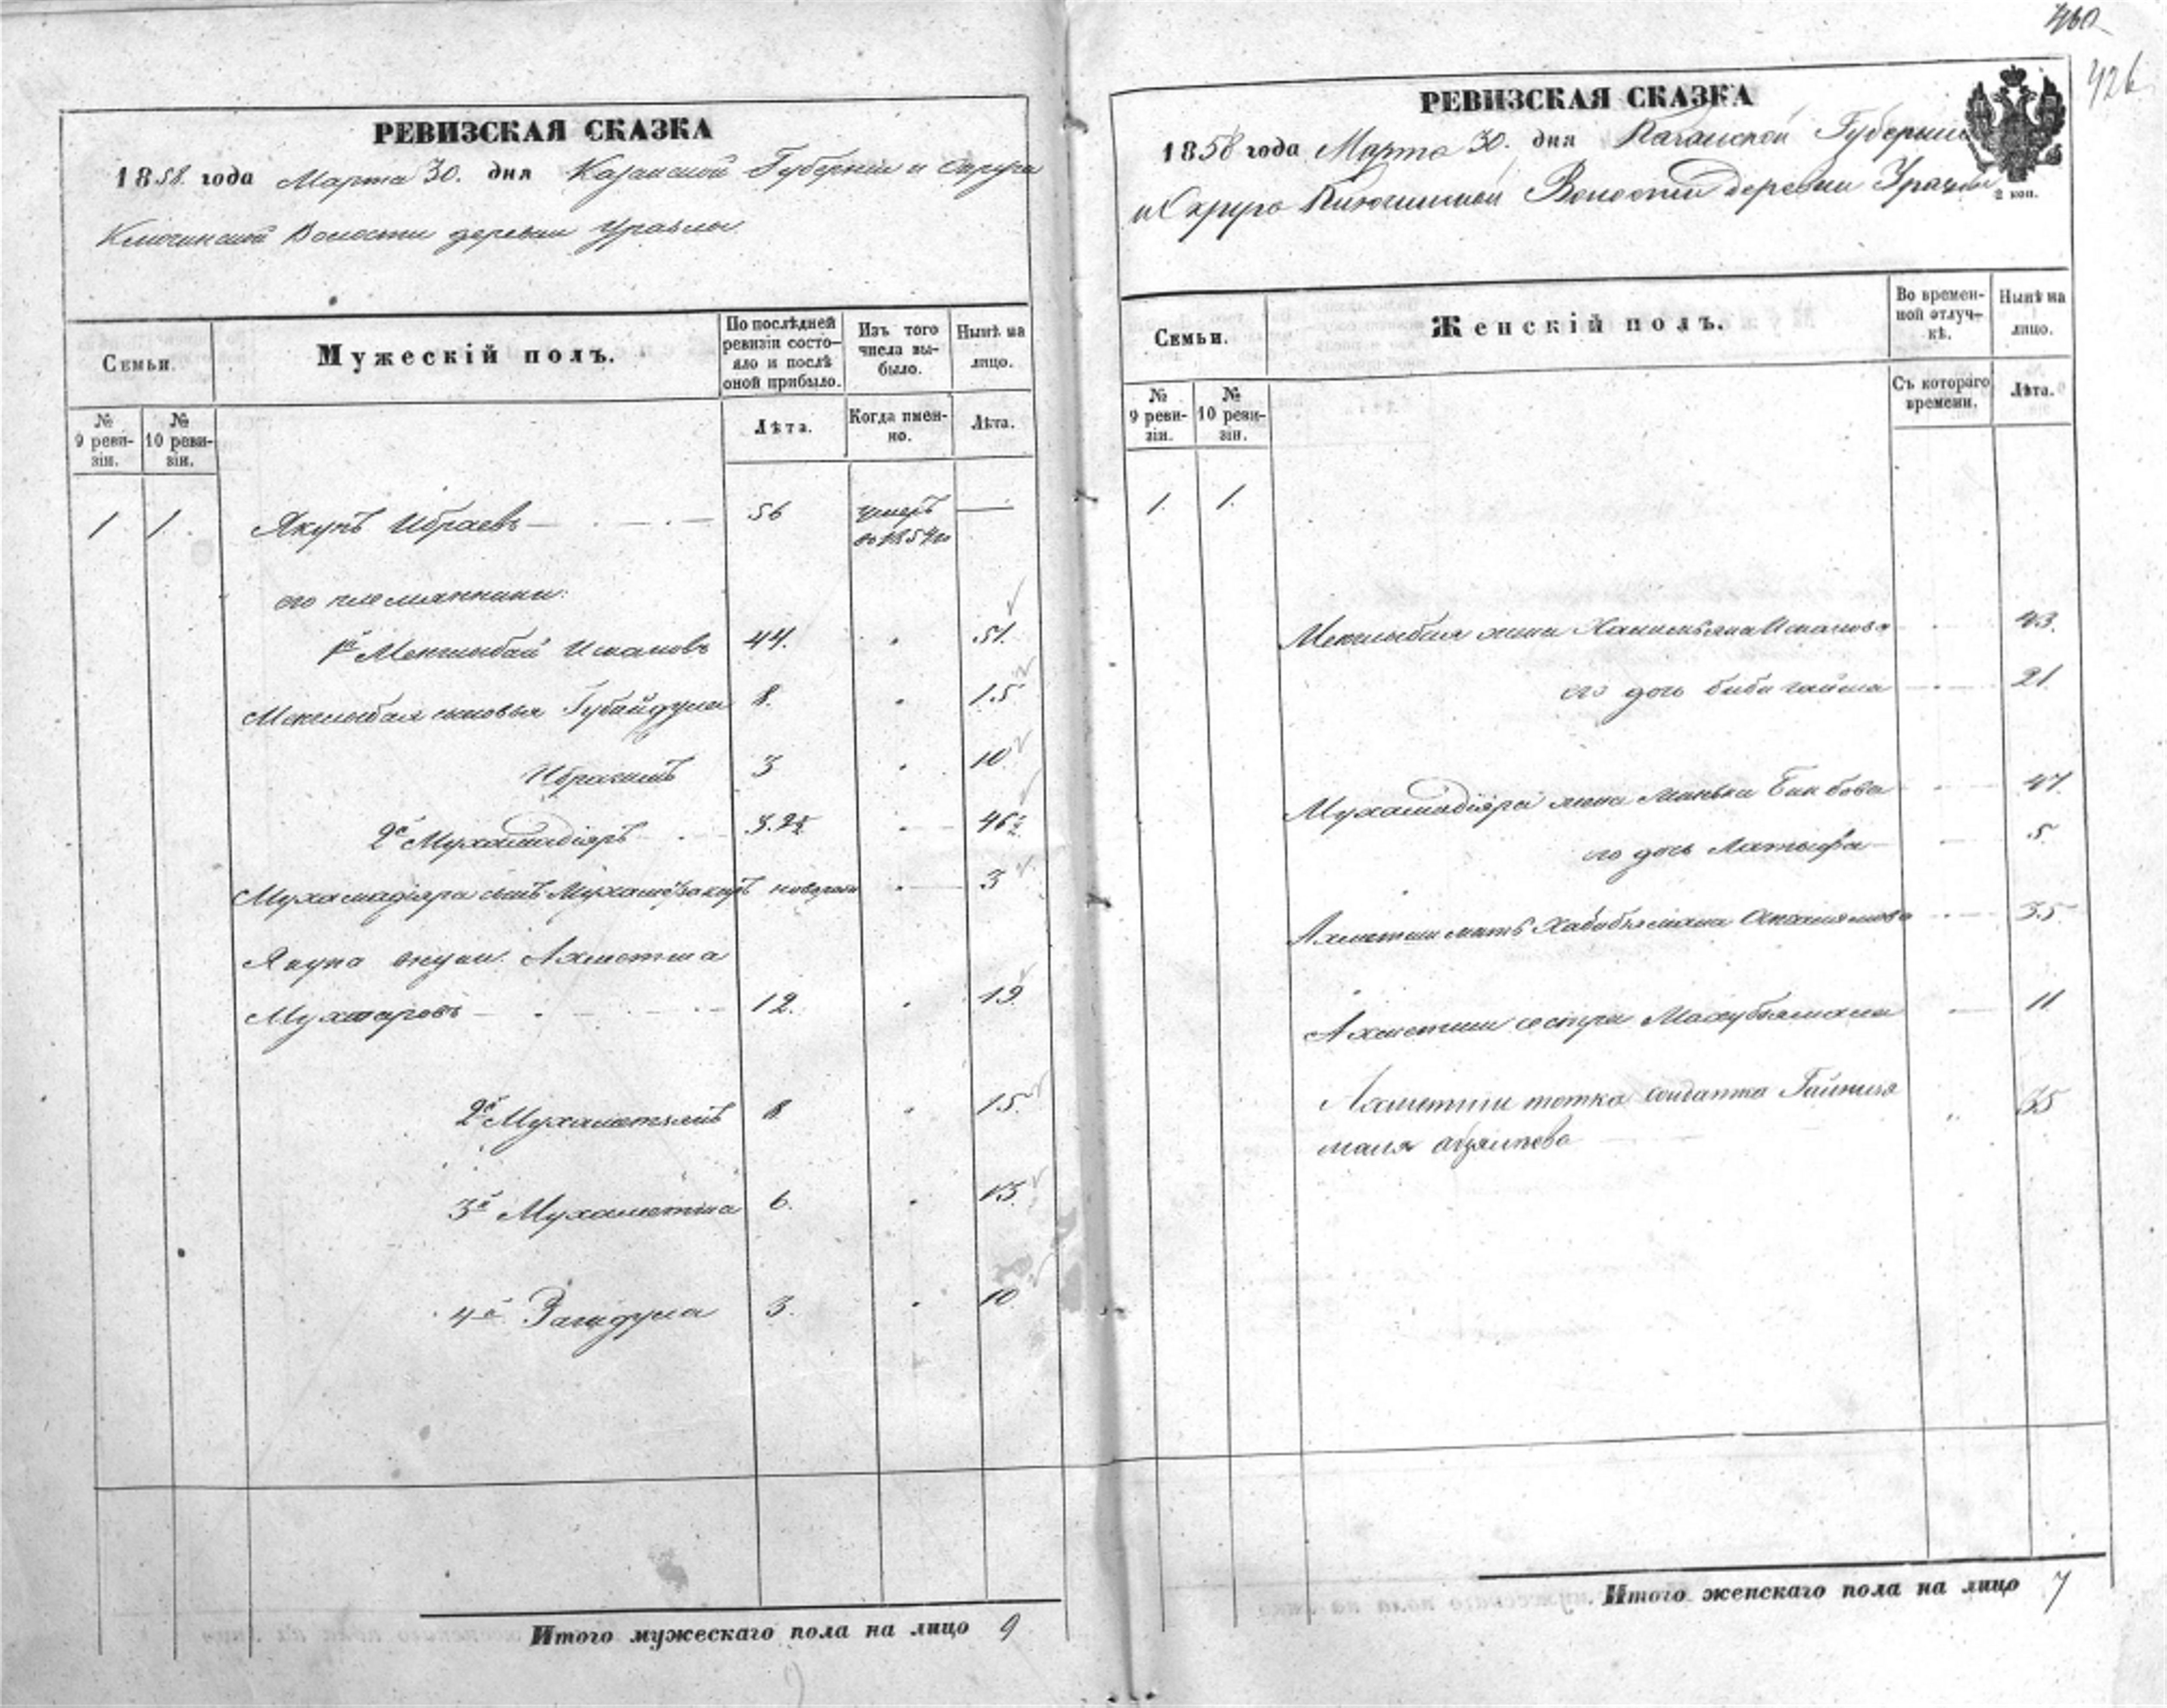 460
426
РЕВИЗСКАЯ СКАЗКА
1858. года Марта 30. дня Казанской Губерніи и Округа
Ключинской Волости деревни Ураевы
Семьи.
Мужескій полъ.
По послѣдней ревизіи состо-яло и послѣ оной прибыло.
Изъ того числа вы-было.
Нынѣ на лицо.
№ 9 реви-зіи.
№ 10 реви-зіи.
Лѣта.
Когда имен-но.
Лѣта.
1 1. Якупъ Ибраевъ 56 умеръ
въ 1854 го
его племянники:
1й Менглибай Исламовъ 44. 51.
Менглибая сыновья Губайдулла 8. 15
Ибрагимъ 3 10
2й Мухамадіяръ 3.2½ 46½
Мухамадіяра сынъ новорож 3
Якупа внуки Ахметша
Мухтаровъ 12. 19.
2й Мухаметзянъ 8 15.
3й Мухаметша 6. 13.
4й Загидулла 3. 10
Итого мужескаго пола на лицо 9
РЕВИЗСКАЯ СКАЗКА
1858 года Марта 30. дня Казанской Губерніи
и Округа Ключинской Волости деревни
2 коп.
Семьи.
Женскій полъ.
Во времен-ной отлуч-кѣ.
Нынѣ на лицо.
№ 9 реви-зіи.
№ 10 реви-зіи.
Съ котораго времени.
Лѣта.
1. 1.
Менглибая жена 43.
его дочь Бибигайша 21.
Мухамадіяра жена 47.
его дочь Латыфа 5.
Ахметши мать Хабибъямала 35.
Ахметши сестра Махубъямала 11
Ахметши тетка солдатка Гайния 65
маля
Итого женскаго пола на лицо 7